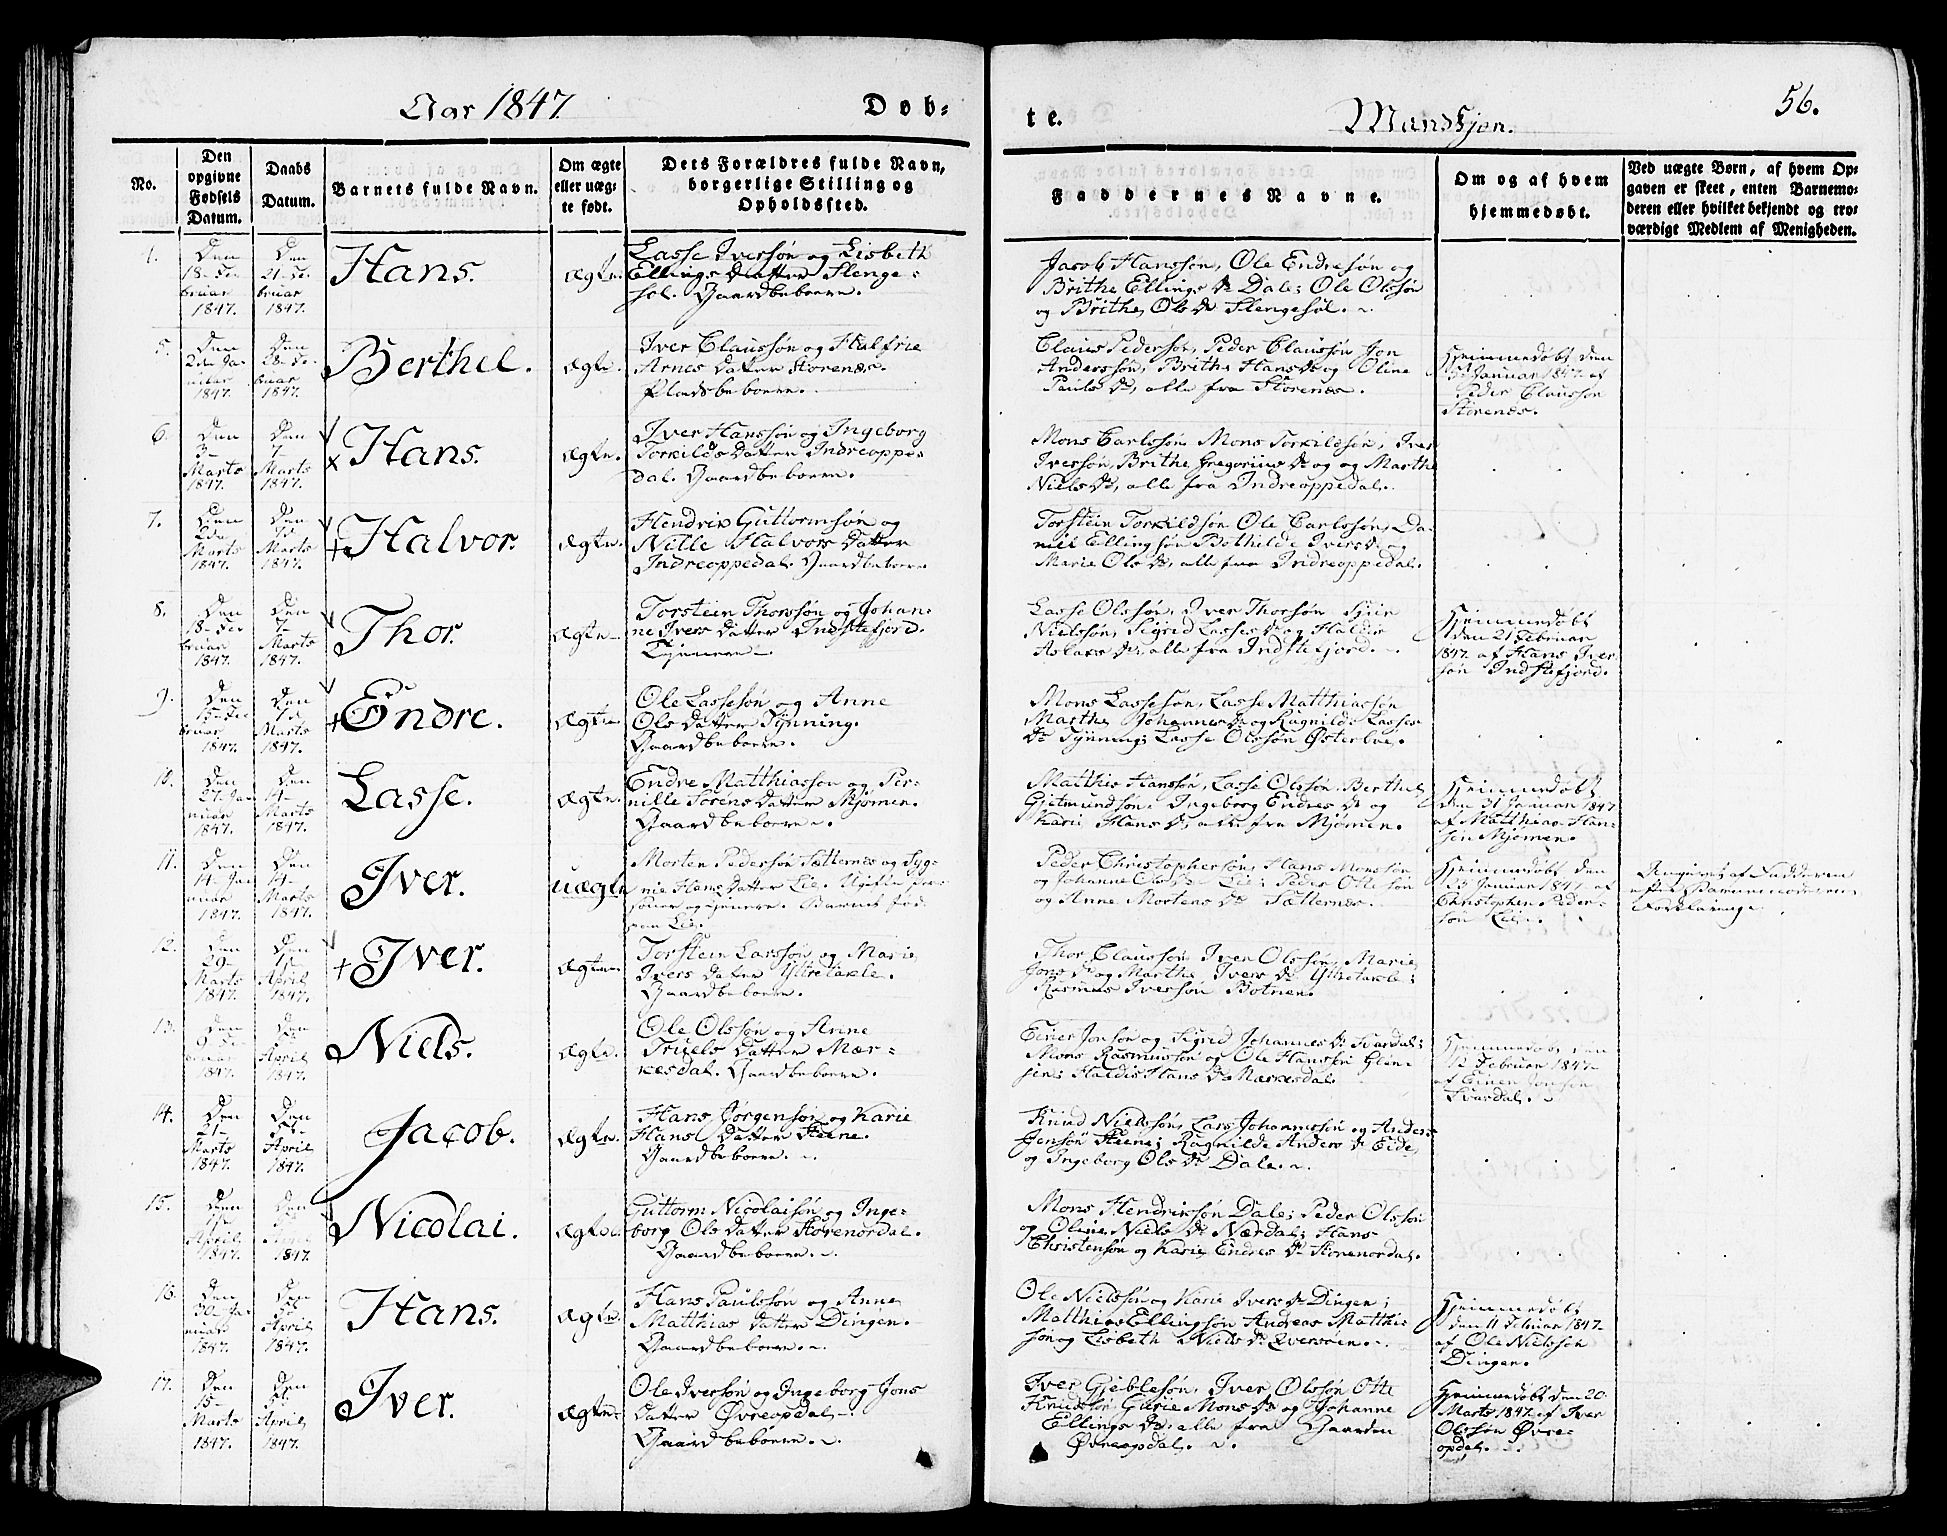 Aar 1847.
Døb-
te.
Mandkjøn.
56.
No.
Den opgivne Fødsels Datum.
Daabs Datum.
Barnets fulde Navn.
Om ægte eller uæg-
te født.
Dets Forældres fulde Navn,
borgerlige Stilling og
Opholdssted.
Faddernes Navne.
Om og af hvem
hjemmedøbt.
Ved uægte Børn, af hvem Op-
gaven er skeet, enten Barnemo-
deren eller hvilket bekjendt og tro-
værdigt Medlem af Menigheden.
4.
Den 18- Fe-
bruar
1847.
Den 21- Fe-
bruar
1847.
Hans.
Ægte.
Lasse Iversøn og Lisbeth
Ellings Datter Slenge-
søl. Gaardbeboere.
Jacob Hanssøn, Ole Endresøn og
Brithe Ellings Dr Dale; Ole Olssøn
og Brithe Ols Dr Slengesøl.
5.
Den 2de Ja-
nuar
1847.
Den 28- Fe-
bruar
1847.
Berthel.
Ægte.
Iver Claussøn og Halfrie
Arnes Datter Storenæs.
Pladsbeboere.
Claus Pedersøn, Peder Claussøn, Jon
Anderssøn, Brithe Hans Dr og Oline
Pauls Dr, alle fra Storenæs.
Hjemmedøbt den
5 Januar 1847 af
Peder Claussøn
Storenæs.
6.
Den 3-
Marts
1847.
Den 7-
Marts
1847.
Hans.
Ægte.
Iver Hanssøn og Ingeborg
Torkilds Datter Indreoppe-
dal. Gaardbeboere.
Mons Carlssøn, Mons Torkildsøn, Iver
Iversøn, Brithe Gregorius Dr og og Marthe
Niels Dr, alle fra Indreoppedal.
7.
Den 2de
Marts
1847.
Den 7d
Marts
1847.
Halvor.
Ægte.
Hendrik Guttormsøn og
Nille Halvors Datter
Indreoppedal. Gaardbeboere
Torstein Torkildsøn, Ole Carlssøn, Da-
niel Ellingsøn, Bothilde Ivers Dr og
Marie Ols Dr, alle fra Indreoppedal.
8.
Den 18- Fe-
bruar
1847.
Den 7-
Marts
1847.
Thor.
Ægte
Torstein Thorsøn og Johan-
ne Ivers Datter Indstefjord.
Tjenere.
Lasse Olssøn, Iver Thorsøn,
Nielssøn, Sigrid Lasses Dr og Haldis
Aslaks Dr, alle fra Indstefjord.
Hjemmedøbt
den 21 Februar
1847 af Hans Iver-
søn Indstefjord.
9.
Den 15- Fe-
bruar
1847.
Den 7d
Marts
1847.
Endre.
Ægte.
Ole Lassesøn og Anne
Ols Datter Tynning.
Gaardbeboere.
Mons Lassesøn, Lasse Matthiassøn
Marthe Johannes Dr og Ragnilde Lasses
Dr Tynning; Lasse Olssøn Østerbøe.
10.
Den 27- Ja-
nuar
1847.
Den 14-
Marts
1847.
Lasse.
Ægte.
Endre Matthiassøn og Per-
nille Sørens Datter Mjømen.
Gaardbeboere.
Matthis Hanssøn, Lasse Olssøn, Berthel
Gjetmundsøn, Ingeborg Endres Dr og
Karie Hans Dr, alle fra Mjømen.
Hjemmedøbt
den 31 Januar 1847
af Matthias Han-
søn Mjømen.
11.
Den 14- Ja-
nuar
1847.
Den 14-
Marts
1847.
Iver.
uægte
Morten Pedersøn Sætternæs og
Hans Datter Lie. Ugifte
og tjenere. Barnet fød
paa Lie.
Peder Christophersøn, Hans Monssøn
og Johanne Ols Dr Lie; Peder Ottesøn
og Anne Mortens Dr Sætternæs.
Hjemmedøbt den
Januar 1847 af
Christophen Peder-
søn Lie.
Angivet af Fadderen
efter Barnemoderens
Forklaring.
12.
Den 29-
Marts
1847.
Den
April
1847.
Iver.
Ægte
Torstein Larssøn og Marie
Ivers Datter Yttretakle.
Gaardbeboere.
Thor Claussøn, Iver Olssøn, Marie
Jons Dr og Marthe Ivers Dr Yttretakle;
Rasmus Iversøn Botnen.
13.
Den 9- Fe-
bruar
1847.
Den
April
1847.
Niels.
Ægte.
Ole Olssøn og Anne
Truels Datter Mær-
kesdal. Gaardbeboere.
Einer Jonsøn og Sigrid Johannes Dr Svardal;
Mons Rasmussøn og Ole Hanssøn
Haldis Hans Dr
Hjemmedøbt den
12 Februar 1847
af Einer Jonsøn
Svardal.
14.
Den 21-
Marts
1847.
Den
April
1847.
Jacob.
Ægte.
Hans Jørgensøn og Karie
Hans Datter Steene.
Gaardbeboere.
Knud Nielssøn, Lars Johannessøn og Anders
Jensøn Steene; Ragnilde Anders Dr Eide
og Ingeborg Ols Dr Dale.
15.
Den
April
1847.
Den
April
1847.
Nicolai.
Ægte.
Guttorm Nicolaisøn og Inge-
borg Ols Datter Storenordal.
Gaardbeboere.
Mons Hendriksøn Dale; Peder Olssøn
og Oline Niels Dr Nærdal; Hans
Christensøn og Karie Endres Dr Storenordal.
16.
Den 30- Ja-
nuar
1847.
Den
April
1847.
Hans.
Ægte.
Hans Paulssøn og Anne
Matthias Datter Dingen.
Gaardbeboere.
Ole Nielssøn og Karie Ivers Dr Dingen;
Matthias Ellingsøn, Andreas Matthi-
søn og Lisbeth Niels Dr
Hjemmedøbt
den 11 Februar 1847
af Ole Nielssøn
Dingen.
17.
Den 15-
Marts
1847.
Den
April
1847.
Iver.
Ægte
Ole Iversøn og Ingeborg Jons
Datter Øvreopdal.
Gaardbeboere.
Iver Gjeblesøn, Iver Olssøn, Otte
Knudsøn, Marie Mons Dr og Johanne
Ellings Dr, alle fra Gaarden
Øvreopdal.
Hjemmedøbt den 20
Marts 1847 af Iver
Olssøn Øvre-
opdal.